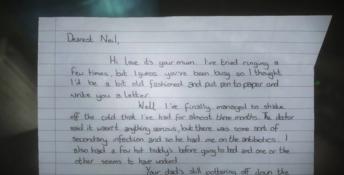 Dearest Neil,
Hi love it's your mum. I've tried ringing a
few times, but I guess you've been busy so I thought
I'd be a bit old fashioned and put pen to paper and
write you a letter.
Well I've finally managed to shake
off the cold that I've had for almost three months. The doctor
said it wasn't anything serious, but there was some sort of
secondary infection and so he had me on the antibiotics. I
also had a few hot toddy's before going to bed and one or the
other seems to have worked
Your dad's still pottering off down the